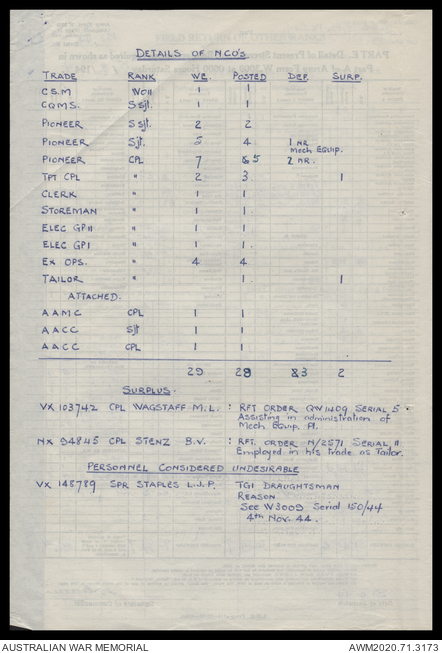 DETAILS OF NCO's
TRADE RANK WE. POSTED DEF. SURP.
C.S.M WOII 1 1
CQMS. S sjt. 1 1
PIONEER S sjt. 2 2
PIONEER Sjt. 5 4 1 NR Mech Equip.
PIONEER CPL 7 5 2 NR.
TPT CPL " 2 3 1
CLERK " 1 1
STOREMAN " 1 1
ELEC GPII " 1 1
ELEC GPI " 1 1
EX OPS. " 4 4
TAILOR " 1 1
ATTACHED.
AAMC CPL 1 1
AACC Sjt 1 1
AACC CPL 1 1
29 28 3 2
SURPLUS.
VX 103742 CPL WAGSTAFF M.L. : RFT ORDER QW1409 SERIAL 5.
Assisting in administration of
Mech Equip. Pl.
NX 94845 CPL STENZ B.V. : RFT. ORDER N/2571 SERIAL 11
Employed in his trade as Tailor.
PERSONNEL CONSIDERED UNDESIRABLE
VX 148789 SPR STAPLES L.J.P. TGI DRAUGHTSMAN
REASON
See W3009 Serial 150/44
4th Nov. 44.
AUSTRALIAN WAR MEMORIAL AWM2020.71.3173